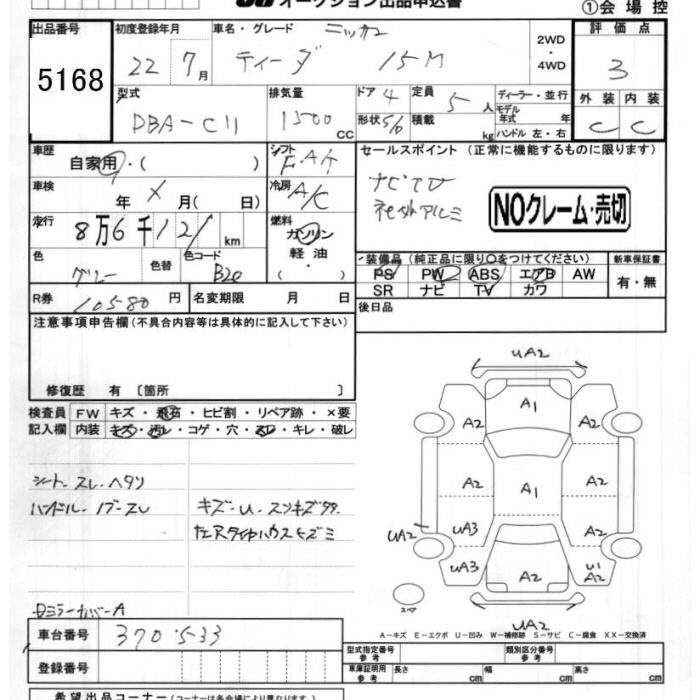 オークション出品申込書
①会場控
出品番号 初度登録年月 車名・グレード ニッサン 2WD・4WD 評価点
5168 22 7月 ティーダ 15M 3
型式 排気量 ドア 4 定員 5人 ディーラー・並行 外装 内装
DBA-C11 1500cc 形状 5/6 積載 kg モデル年式 年 ハンドル 左・右 C C
車歴 自家用・( ) シフト F.AT セールスポイント (正常に機能するものに限ります)
車検 年 X 月( 日) 冷房 A/C ナビTV
社外アルミ
NOクレーム・売切
走行 8万6千121km 燃料 ガソリン・軽油・( )
色 グレー 色替 色コード 装備品 (純正品に限り○をつけてください) 新車保証書
PS PW ABS エアB AW 有・無
SR ナビ TV カワ
R券 10580円 名変期限 月 日 後日品
注意事項申告欄(不具合内容等は具体的に記入して下さい)
修復歴 有 〔箇所 〕
検査員記入欄 FW キズ・飛石・ヒビ割・リペア跡・×要
内装 キズ・汚レ・コゲ・穴・スレ・キレ・破レ
シート スレ.ヘタリ
ハンドル
キズ-U.スリキズ
UA2
A1
A2 A2
A2 A1 A2
UA2 UA3 A2
UA3 A2 U1 A2
スペア
UA2
A-キズ E-エクボ U-凹み W-補修跡 S-サビ C-腐食 XX-交換済
車台番号 370533
型式指定番号 参考 類別区分番号 参考
登録番号 車庫証明用 参考 長さ cm 幅 cm 高さ cm
希望出品コーナー(コーナーは各会場により異なります)